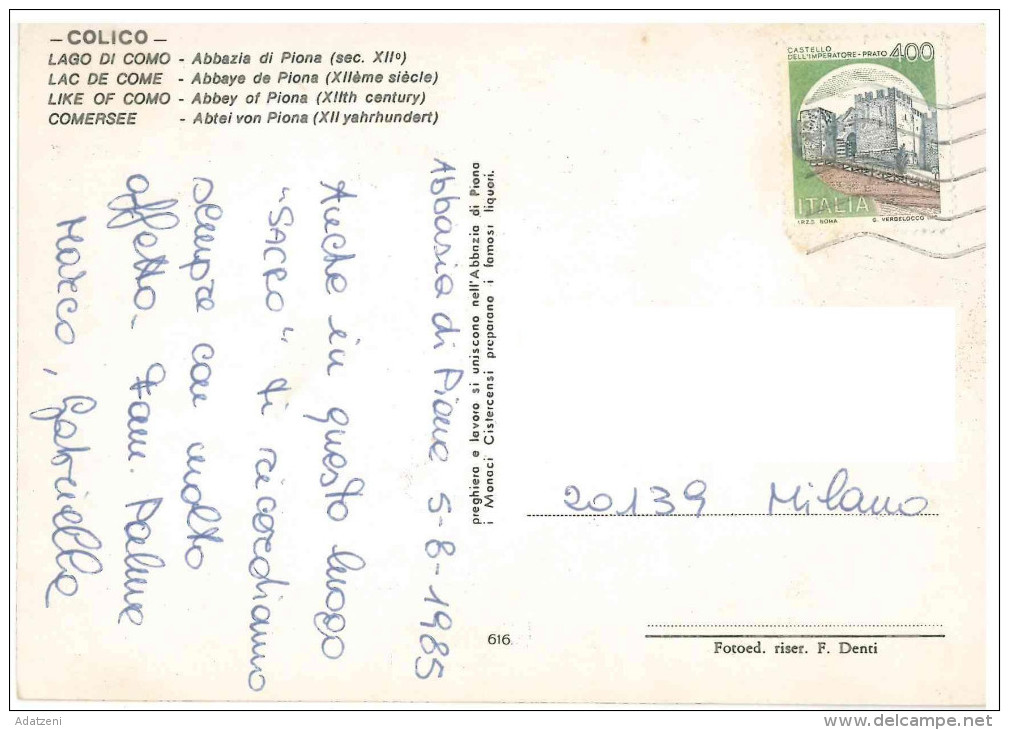 — COLICO —
LAGO DI COMO - Abbazia di Piona (sec. XII°)
LAC DE COME - Abbaye de Piona (XIIème siècle)
LIKE OF COMO - Abbey of Piona (XIIth century)
COMERSEE - Abtei von Piona (XII yahrhundert)
Abbazia di Piona 5-8-1985
Anche in questo luogo
"SACRO" ti ricordiamo
sempre con molto
affetto.
Fam. Palme
Marco, Gabriella
preghiera e lavoro si uniscono nell'Abbazia di Piona
i Monaci Cistercensi preparano i famosi liquori.
CASTELLO
DELL'IMPERATORE-PRATO 400
ITALIA
I.P.Z.S. ROMA G. VERDELOCCO
20139 Milano
616.
Fotoed. riser. F. Denti
Adatzeni
delcampe.net